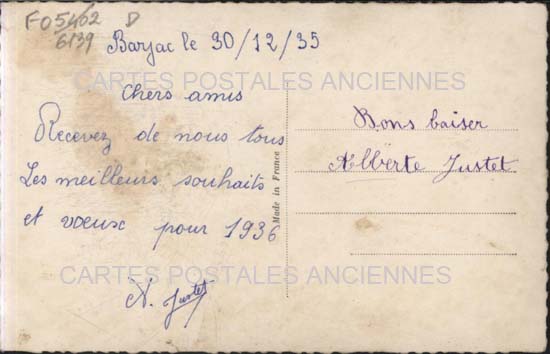 F05462 D
6139
Barjac le 30/12/35
CARTES POSTALES ANCIENNES
Chers amis
Recevez de nous tous
Les meilleurs souhaits
et voeux pour 1936
A. Justet
Made in France
Bons baiser
Alberte Justet
CARTES POSTALES ANCIENNES